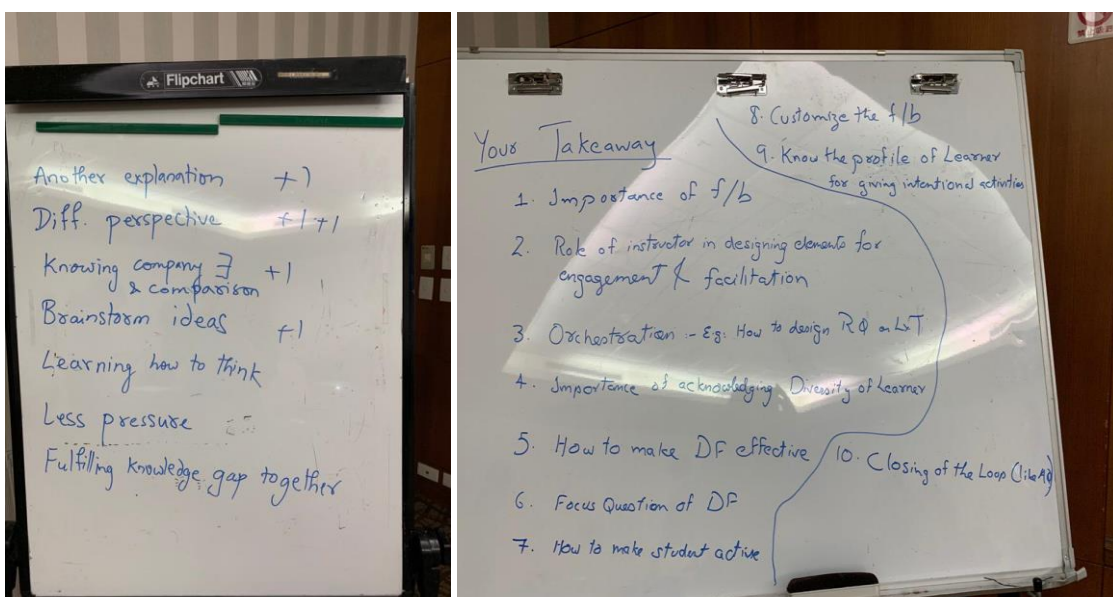 Flipchart
Another explanation +1
Diff. perspective +1 +1
Knowing company
& comparison +1
Brainstorm ideas +1
Learning how to think
Less pressure
Fulfilling knowledge gap together
Your Takeaway
1. Importance of f/b
2. Role of instructor in designing elements for
engagement & facilitation
3. Orchestration :- Eg: How to design RQ on LxT
4. Importance of acknowledging Diversity of Learner
5. How to make DF effective
6. Focus Question of DF
7. How to make student active
8. Customize the f/b
9. Know the profile of Learner
for giving intentional activities
10. Closing of the Loop (like AQ)